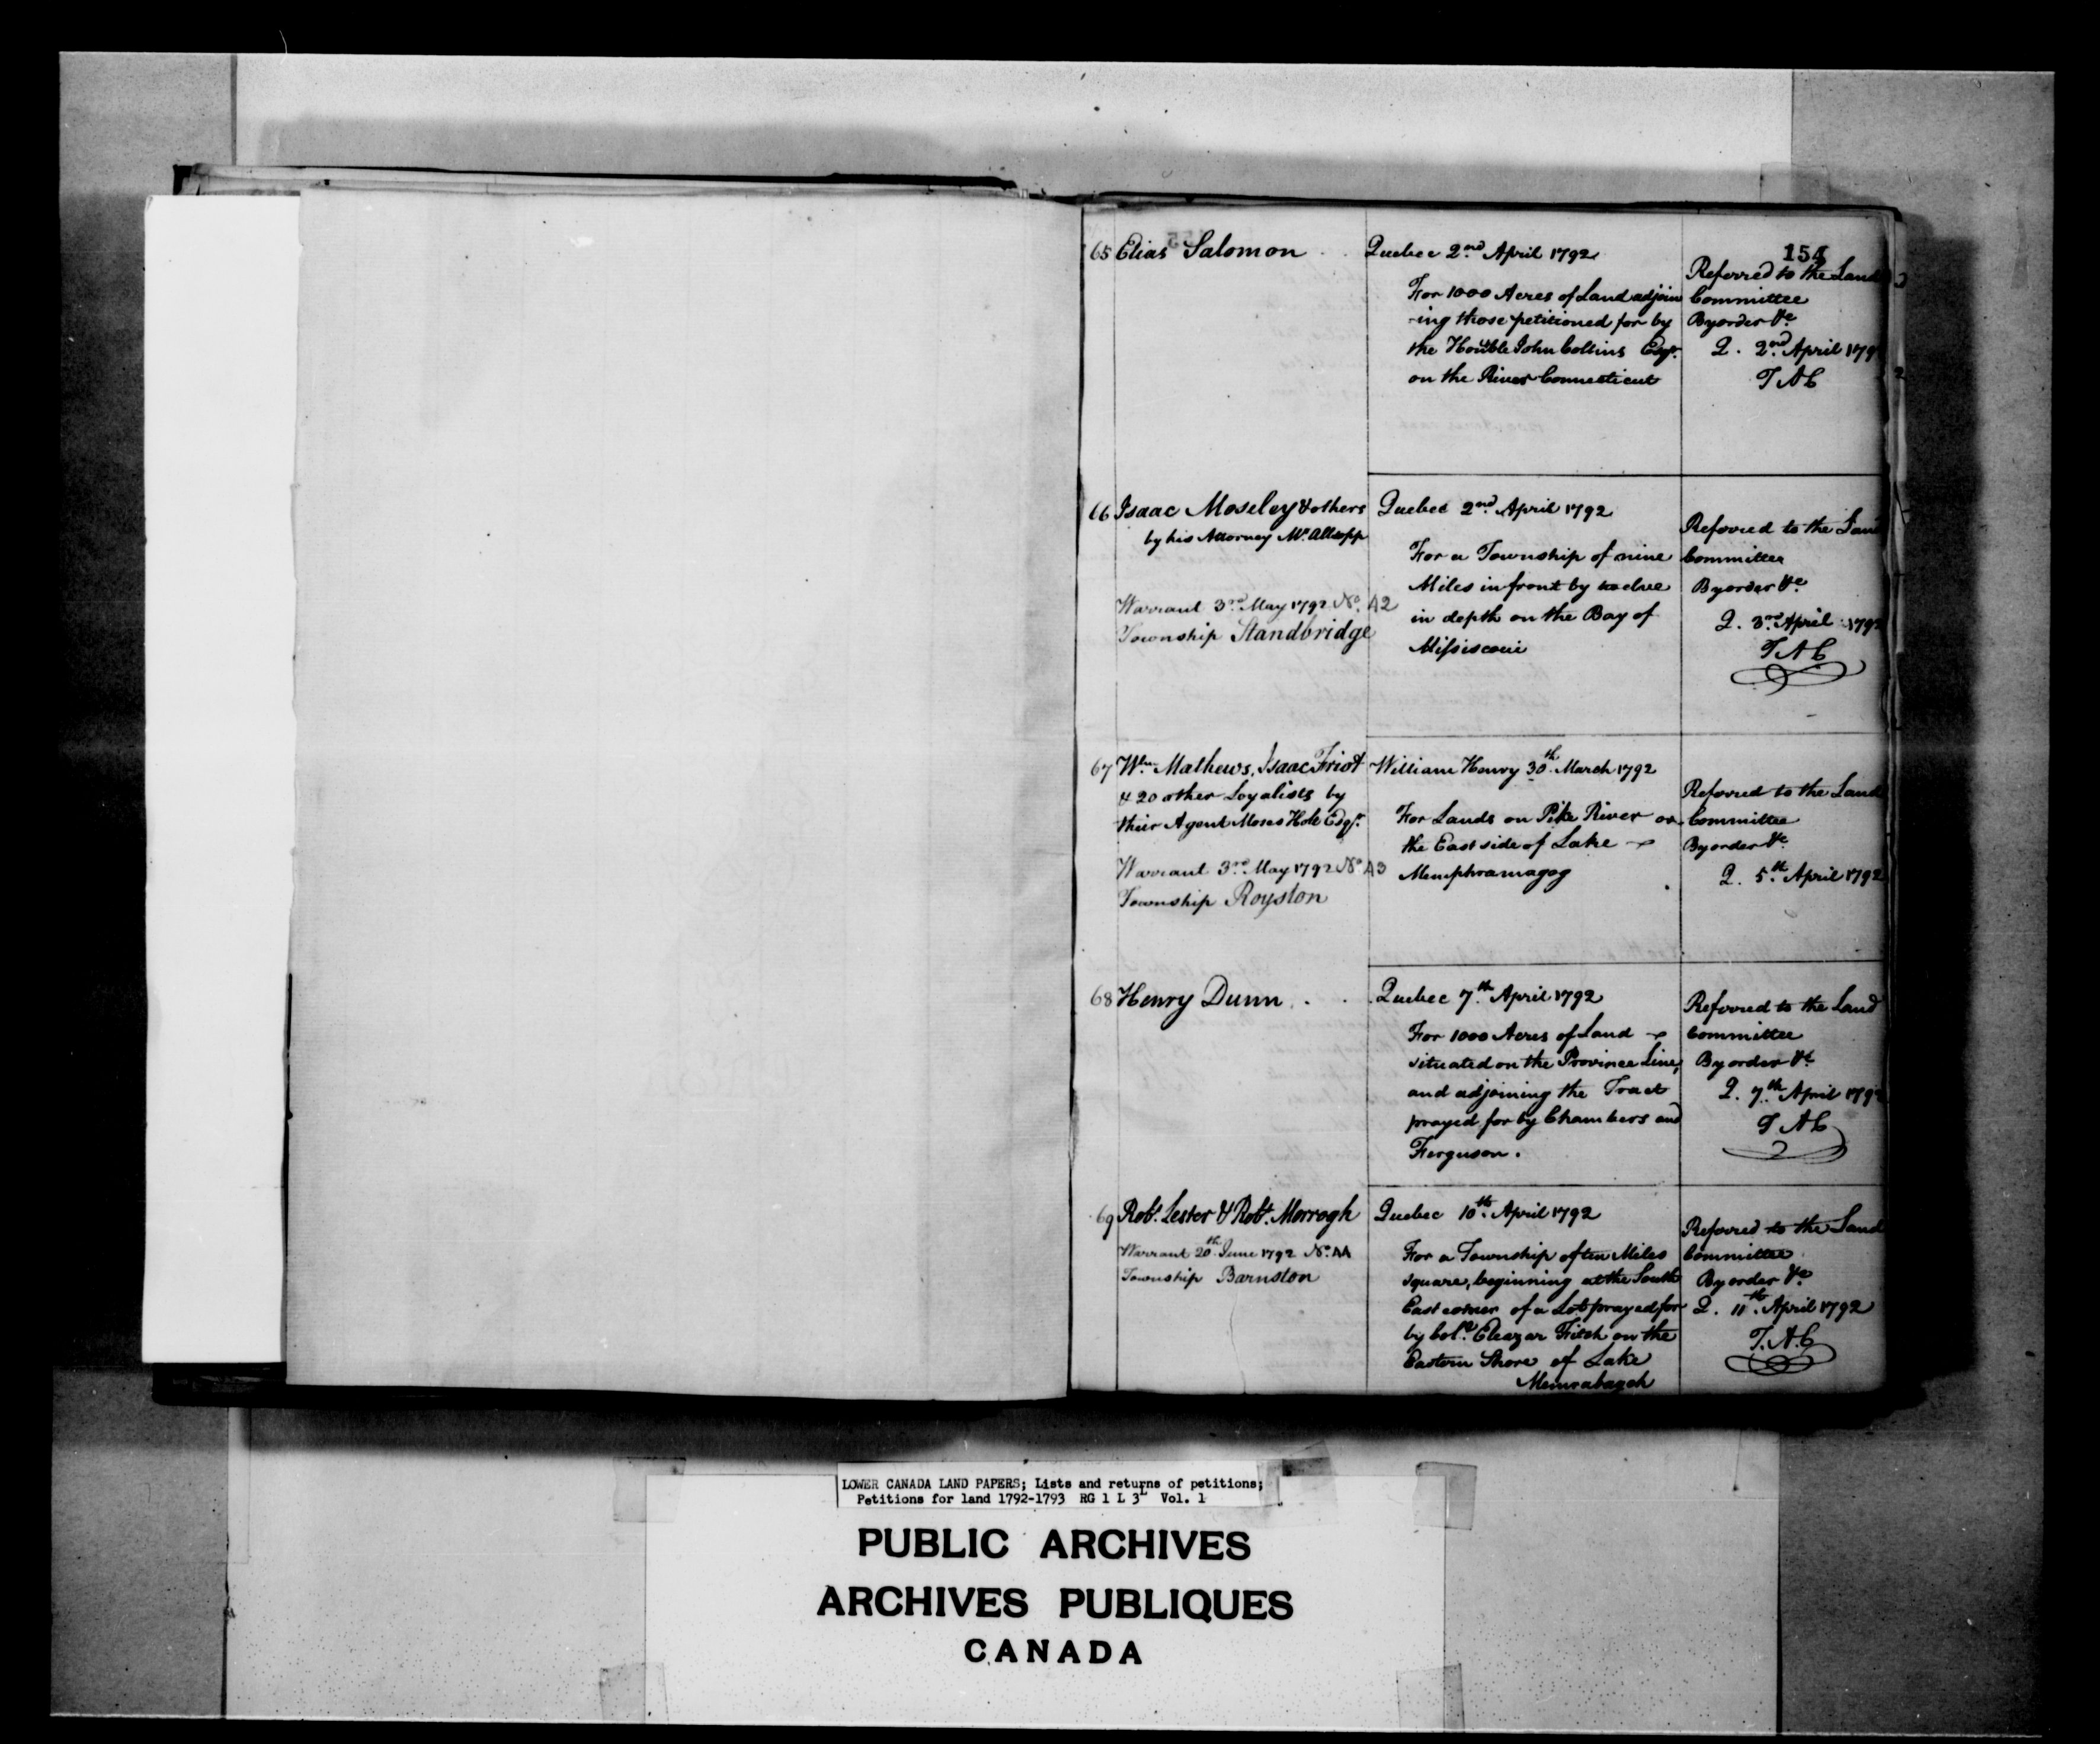 154
65 Elias Salomon
Quebec 2nd April 1792
For 1000 Acres of Land adjoin
-ing those petitioned for by
the Honble John Collins Esqr.
on the River Connecticut
Referred to the Land
Committee
By order &c
Q. 2nd April 179
T A C
66 Isaac Moseley & others
by his Attorney Mr. Allsopp
Warrant 3rd May 1792 No. 42
Township Standbridge
Quebec 2nd April 1792
For a Township of nine
Miles in front by twelve
in depth on the Bay of
Missiscoui
Referred to the Land
Committee
By order &c
Q. 3rd April 1792
T A C
67 Wm. Mathews, Isaac Friot
& 20 other Loyalists by
their Agent Moses Holt Esqr.
Warrant 3rd May 1792 No. 43
Township Royston
William Henry 30th March 1792
For Lands on Pike River or
the East side of Lake
Memphramagog
Referred to the Land
Committee
By order &c
Q. 5th April 1792
68 Henry Dunn
Quebec 7th April 1792
For 1000 Acres of Land
situated on the Province Line,
and adjoining the Tract
prayed for by Chambers and
Ferguson.
Referred to the Land
Committee
By order &c
Q. 7th April 1792
T A C
69 Robt. Lester & Robt. Morrogh
Warrant 20th June 1792 No. 44
Township Barnston
Quebec 10th April 1792
For a Township of ten Miles
square, beginning at the South
East corner of a Lot prayed for
by Col. Eleazar Fitch on the
Eastern Shore of Lake
Memrabagoh
Referred to the Land
Committee
By order &c
Q. 11th April 1792
T. A. C
LOWER CANADA LAND PAPERS; Lists and returns of petitions;
Petitions for land 1792-1793 RG 1 L 3L Vol. 1
PUBLIC ARCHIVES
ARCHIVES PUBLIQUES
CANADA